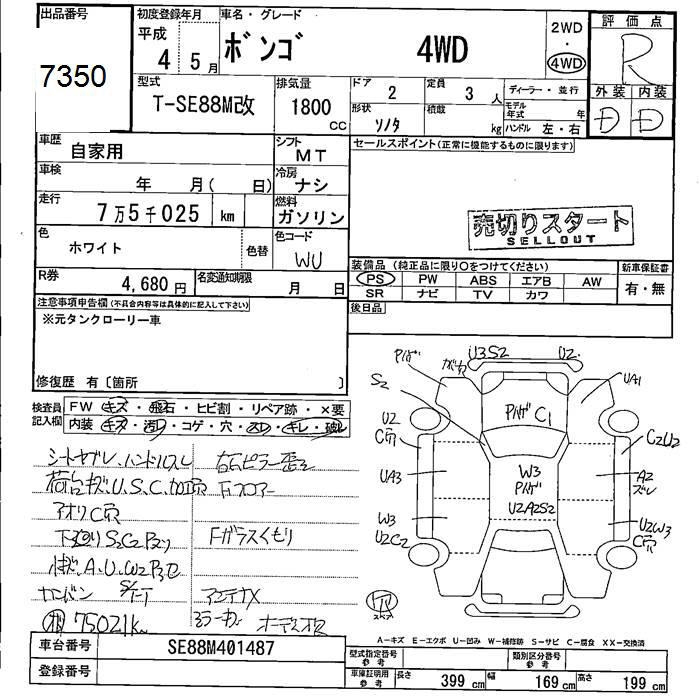 出品番号
7350
初度登録年月
平成
4年 5月
車名・グレード
ボンゴ 4WD
2WD
・
4WD
評価点
R
外装 内装
D D
型式
T-SE88M改
排気量
1800
CC
ドア
2
定員
3 人
形状
ソノタ
積載
kg
ディーラー・並行
モデル年式 年
ハンドル 左・右
車歴
自家用
シフト
MT
車検
年 月( 日)
冷房
ナシ
走行
7万5千025 km
燃料
ガソリン
色
ホワイト
色替
色コード
WU
R券
4,680円
名変通知期限
月 日
セールスポイント(正常に機能するものに限ります)
売切りスタート
SELLOUT
装備品(純正品に限り○をつけてください)
PS PW ABS エアB AW
SR ナビ TV カワ
新車保証書
有・無
後日品
注意事項申告欄(不具合内容等は具体的に記入して下さい)
※元タンクローリー車
修復歴 有〔箇所 〕
検査員
記入欄
FW キズ・飛石・ヒビ割・リペア跡・×要
内装 キズ・汚レ・コゲ・穴・スレ・キレ・破レ
荷台キズ、U.S.C.加工穴 Fフロアー
アオリC穴
Fガラスくもり
アンテナX
75021km
ミラーカバー
U3S2
U2
S2
UA1
C1
U2
C穴
C2U2
UA3
W3
U2A2S2
A2
ズレ
W3
U2C2
U2W3
C穴
スペア
A-キズ E-エクボ U-凹み W-補修跡 S-サビ C-腐食 XX-交換済
車台番号
SE88M401487
登録番号
型式指定番号
参考
類別区分番号
参考
車庫証明用
参考
長さ 399 cm 幅 169 cm 高さ 199 cm